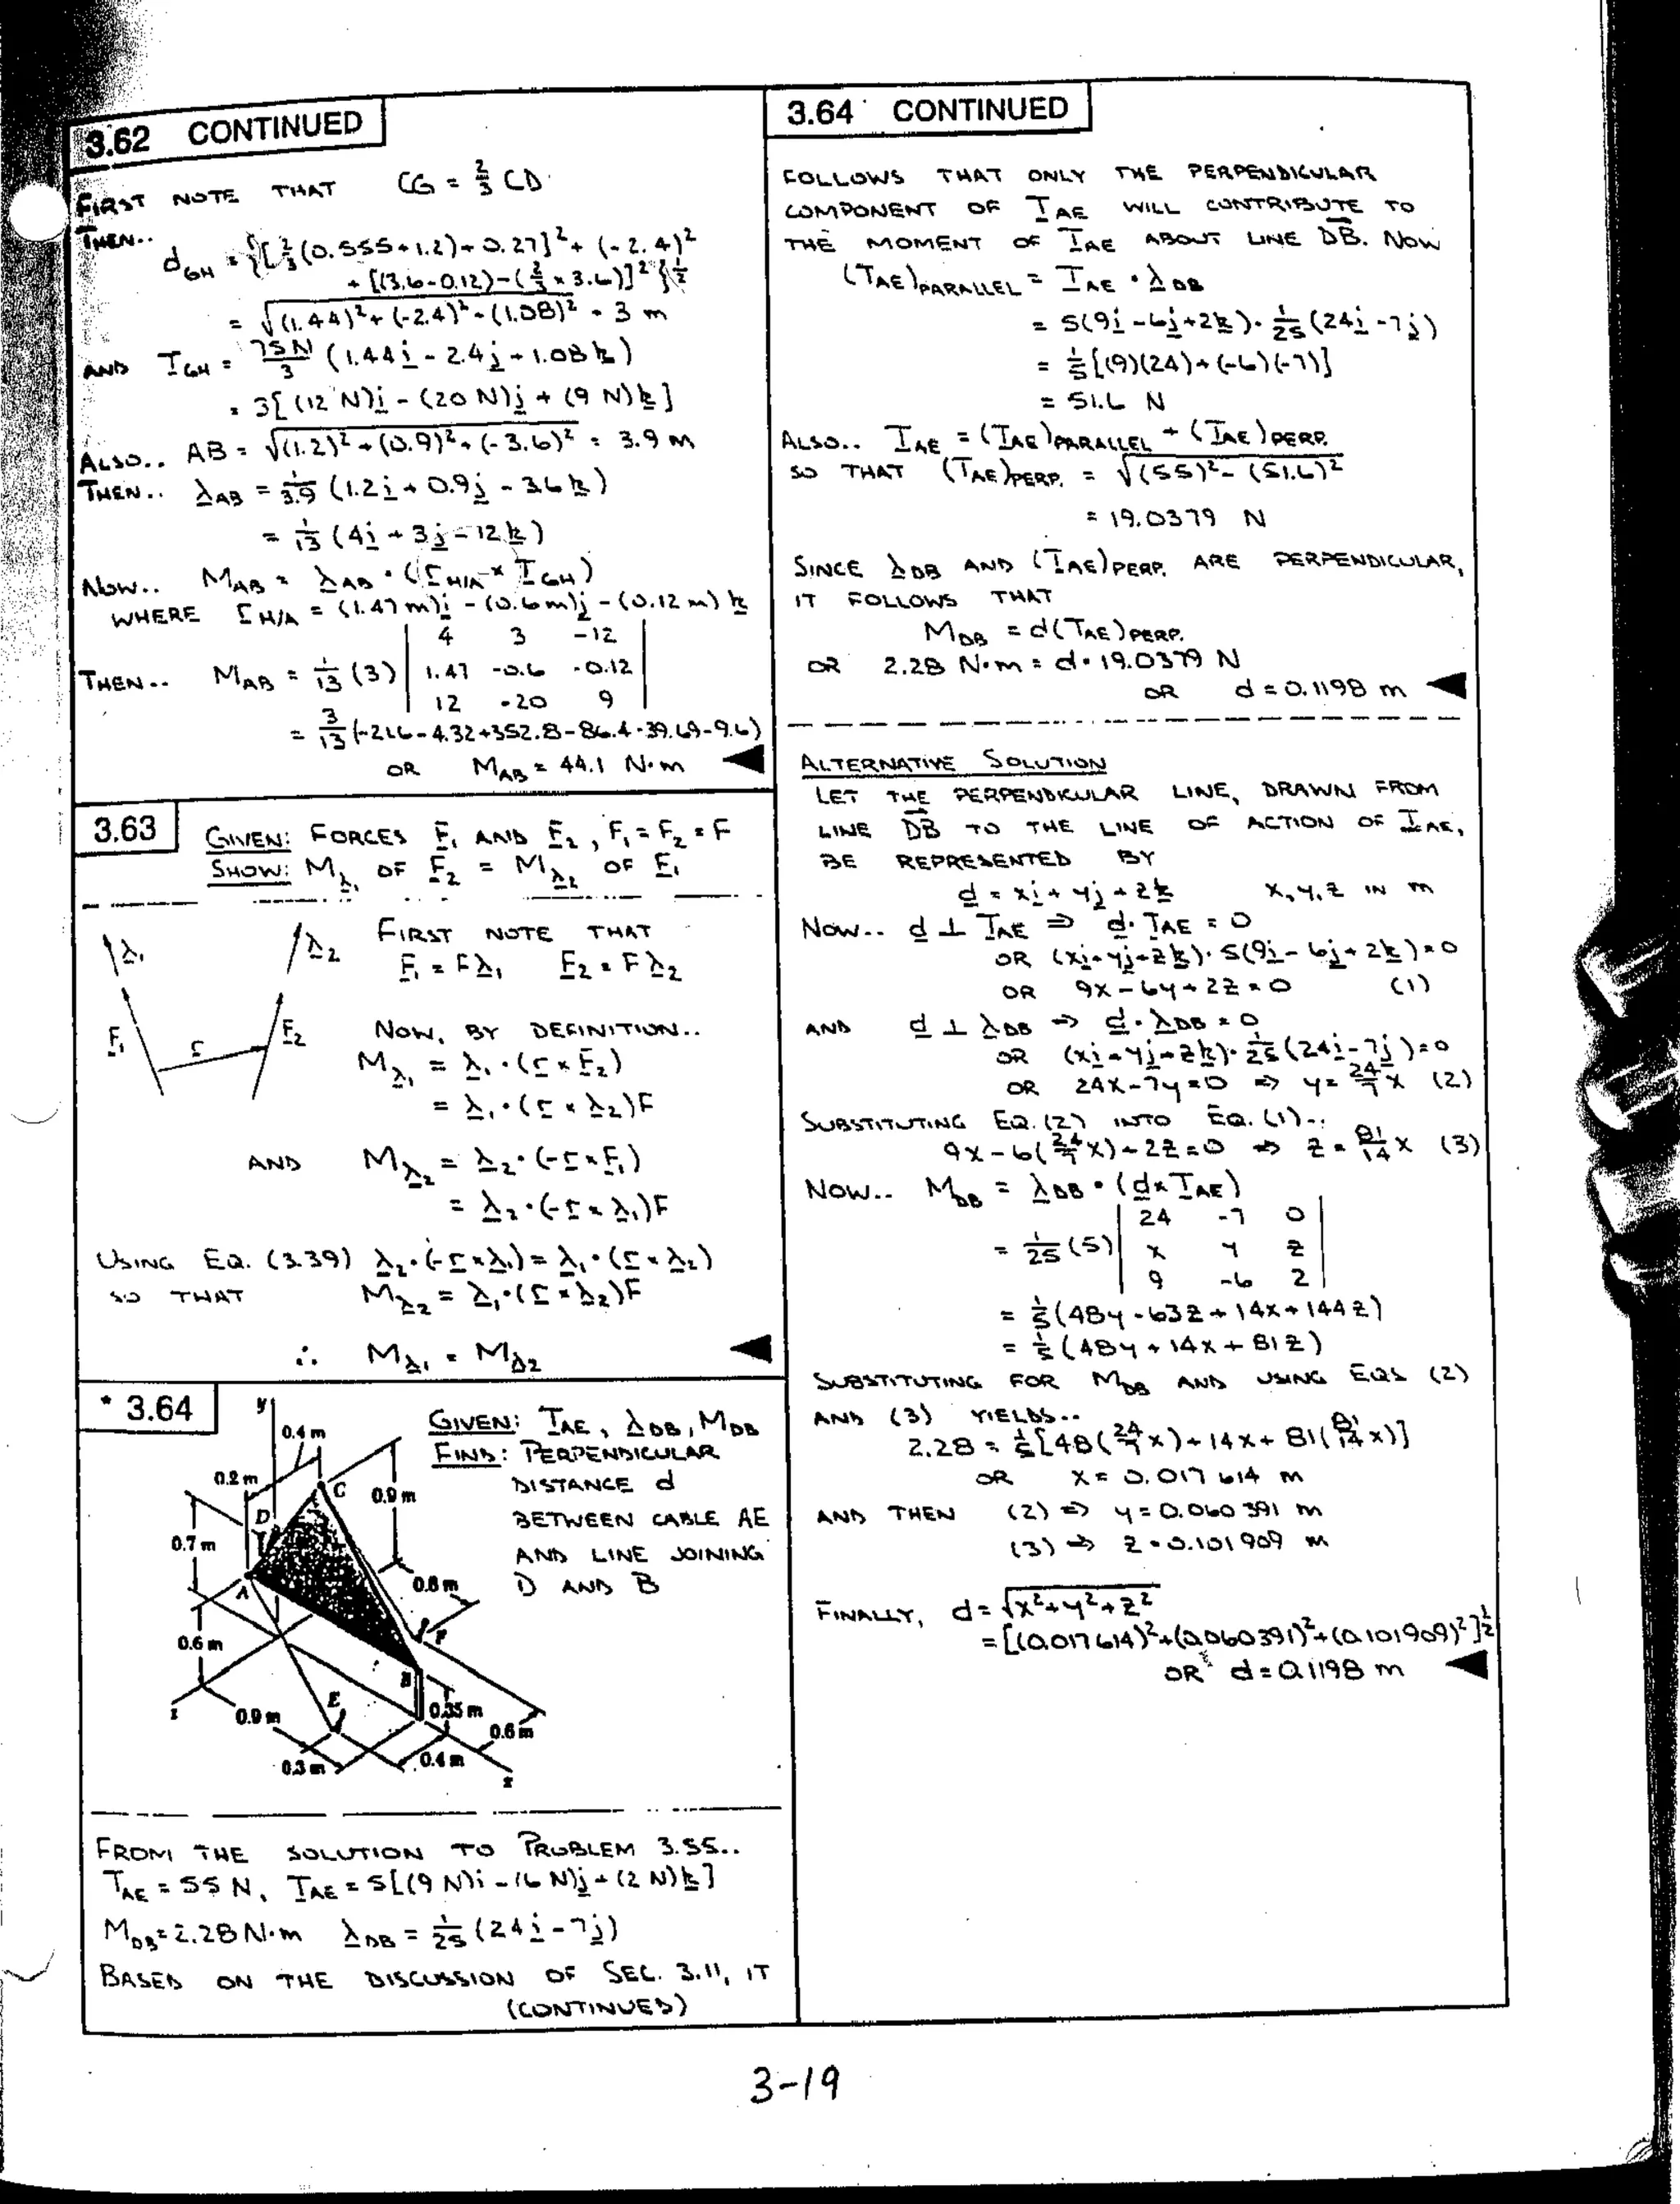 3.62 CONTINUED
FIRST NOTE THAT CG = 2/3 CD
THEN..
d_GH = {[2/3(0.555+1.2)+0.27]² + (-2.4)²
+ [(3.6-0.12)-(2/3 × 3.6)]²}^1/2
= √(1.44)²+(-2.4)²+(1.08)² = 3 m
AND T_GH = 75N/3 (1.44i - 2.4j + 1.08k)
= 3[(12 N)i - (20 N)j + (9 N)k]
ALSO.. AB = √(1.2)²+(0.9)²+(-3.6)² = 3.9 m
THEN.. λ_AB = 1/3.9 (1.2i + 0.9j - 3.6k)
= 1/13 (4i + 3j - 12k)
NOW.. M_AB = λ_AB · (r_H/A × T_GH)
WHERE r_H/A = (1.47m)i - (0.6m)j - (0.12m)k
THEN.. M_AB = 1/13 (3) | 4 3 -12 |
| 1.47 -0.6 -0.12 |
| 12 -20 9 |
= 3/13 (-21.6-4.32+352.8-86.4-39.69-9.6)
OR M_AB = 44.1 N·m
3.63
GIVEN: FORCES F₁ AND F₂, F₁ = F₂ = F
SHOW: M_λ₁ OF F₂ = M_λ₂ OF F₁
λ₁
λ₂
F₁
r
F₂
FIRST NOTE THAT
F₁ = Fλ₁ F₂ = Fλ₂
NOW, BY DEFINITION..
M_λ₁ = λ₁·(r × F₂)
= λ₁·(r × λ₂)F
AND M_λ₂ = λ₂·(-r × F₁)
= λ₂·(-r × λ₁)F
USING EQ. (3.39) λ₂·(-r × λ₁) = λ₁·(r × λ₂)
SO THAT M_λ₂ = λ₁·(r × λ₂)F
∴ M_λ₁ = M_λ₂
* 3.64
GIVEN: T_AE, λ_DB, M_DB
FIND: PERPENDICULAR
DISTANCE d
BETWEEN CABLE AE
AND LINE JOINING
D AND B
y
0.4 m
0.2 m
C
0.9 m
D
0.7 m
A
0.6 m
F
0.6 m
B
E
0.35 m
z
0.9 m
0.6 m
0.3 m
0.4 m
x
FROM THE SOLUTION TO PROBLEM 3.55..
T_AE = 55 N, T_AE = 5[(9 N)i - (6 N)j + (2 N)k]
M_DB = 2.28 N·m λ_DB = 1/25 (24i - 7j)
BASED ON THE DISCUSSION OF SEC. 3.11, IT
(CONTINUED)
3.64 CONTINUED
FOLLOWS THAT ONLY THE PERPENDICULAR
COMPONENT OF T_AE WILL CONTRIBUTE TO
THE MOMENT OF T_AE ABOUT LINE DB. NOW
(T_AE)PARALLEL = T_AE · λ_DB
= 5(9i - 6j + 2k)· 1/25 (24i - 7j)
= 1/5 [(9)(24)+(-6)(-7)]
= 51.6 N
ALSO.. T_AE = (T_AE)PARALLEL + (T_AE)PERP.
SO THAT (T_AE)PERP. = √(55)² - (51.6)²
= 19.0379 N
SINCE λ_DB AND (T_AE)PERP. ARE PERPENDICULAR,
IT FOLLOWS THAT
M_DB = d(T_AE)PERP.
OR 2.28 N·m = d · 19.0379 N
OR d = 0.1198 m
ALTERNATIVE SOLUTION
LET THE PERPENDICULAR LINE, DRAWN FROM
LINE DB TO THE LINE OF ACTION OF T_AE,
BE REPRESENTED BY
d = xi + yj + zk x, y, z IN m
NOW.. d ⊥ T_AE ⇒ d·T_AE = 0
OR (xi+yj+zk)·5(9i-6j+2k) = 0
OR 9x - 6y + 2z = 0 (1)
AND d ⊥ λ_DB ⇒ d·λ_DB = 0
OR (xi+yj+zk)· 1/25 (24i-7j) = 0
OR 24x - 7y = 0 ⇒ y = 24/7 x (2)
SUBSTITUTING EQ. (2) INTO EQ. (1)..
9x - 6(24/7 x) + 2z = 0 ⇒ z = 81/14 x (3)
NOW.. M_DB = λ_DB · (d × T_AE)
= 1/25 (5) | 24 -7 0 |
| x y z |
| 9 -6 2 |
= 1/5 (48y - 63z + 14x + 144z)
= 1/5 (48y + 14x + 81z)
SUBSTITUTING FOR M_DB AND USING EQS (2)
AND (3) YIELDS..
2.28 = 1/5 [48(24/7 x) + 14x + 81(81/14 x)]
OR x = 0.017 614 m
AND THEN (2) ⇒ y = 0.060 391 m
(3) ⇒ z = 0.101 909 m
FINALLY, d = √x²+y²+z²
= [(0.017614)²+(0.060391)²+(0.101909)²]^1/2
OR d = 0.1198 m
3-19